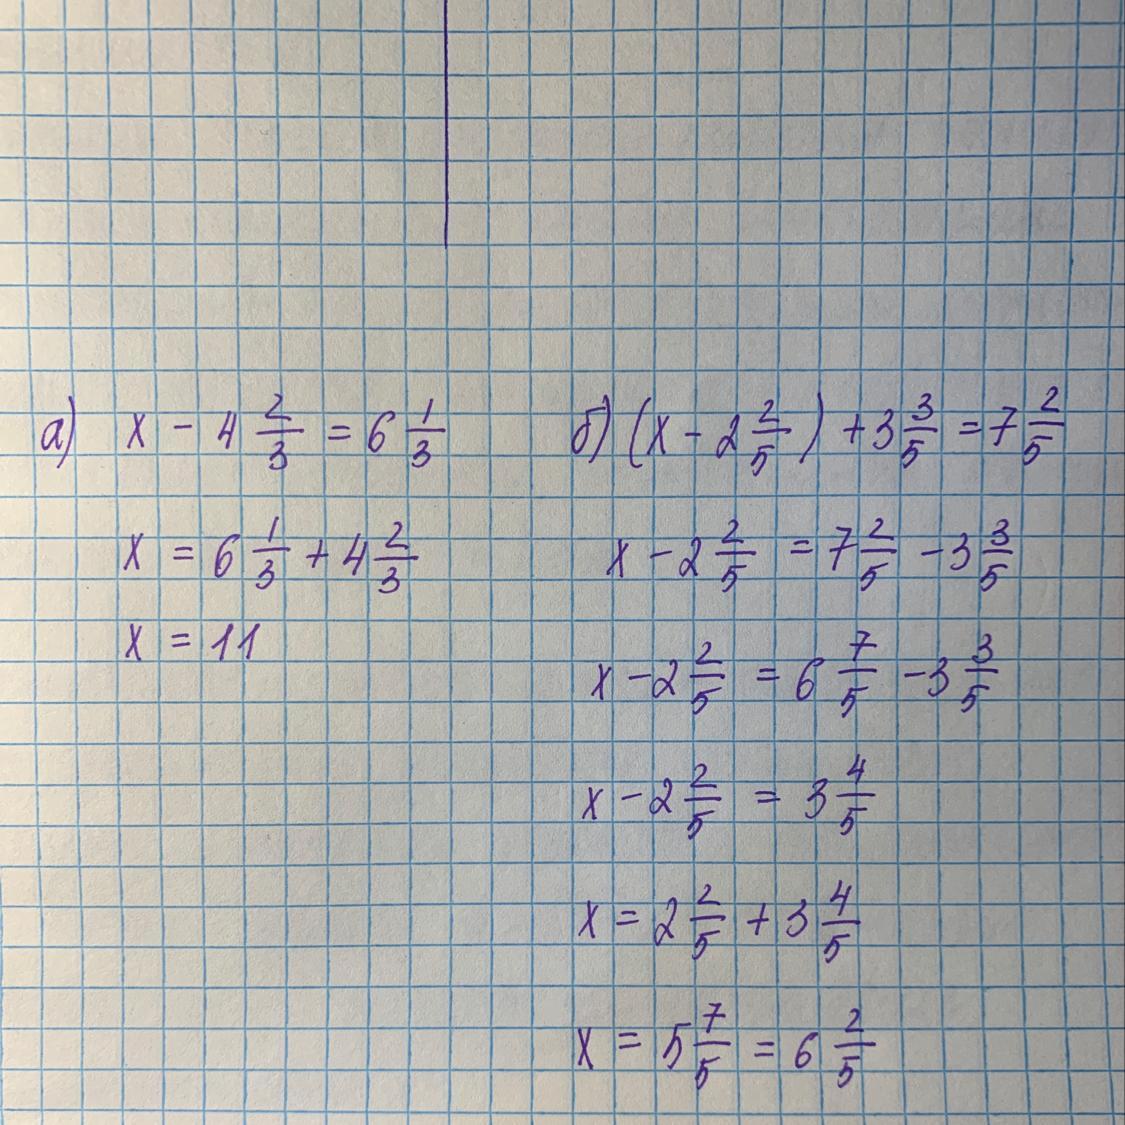 а) x - 4 2/3 = 6 1/3
x = 6 1/3 + 4 2/3
x = 11
б) (x - 2 2/5) + 3 3/5 = 7 2/5
x - 2 2/5 = 7 2/5 - 3 3/5
x - 2 2/5 = 6 7/5 - 3 3/5
x - 2 2/5 = 3 4/5
x = 2 2/5 + 3 4/5
x = 5 7/5 = 6 2/5